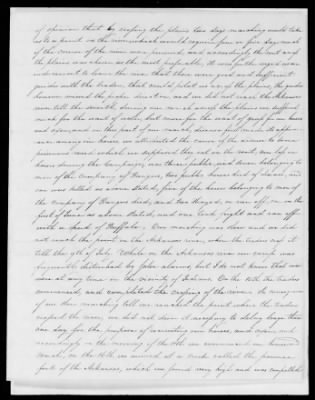 of opinion that by crossing the plains two days marching would take
us to a point on the river which would require four or five days march
if the course of the river was pursued, and accordingly the rout over
the plains was chosen as the most preferable, It was further urged as an
inducement to leave the river that there were good and sufficient
guides with the traders that could pilot us over the plains, the guides
however missed the point directed, and we did not reach the Arkansas
river till the seventh, during our march across the plains we suffered
much for the want of water, but more for the want of grass for our horses
and oxen, and on this part of our march, disease first made its appear-
ance among our horses, we attributed the cause of the disease to have
proceeded from which we supposed they eat on the rout, we lost ten
horses during the Campaign, viz three public, and seven belonging to
men of the Company of Rangers, two public horses died of disease, and
one was killed as above stated, five of the horses belonging to men of
the Company of Rangers died, and two strayed, or ran off, one on the
first of June as above stated, and one took fright and ran off
with a herd of Buffalo; Our marching was slow and we did
not reach the point on the Arkansas river, where the traders cross it
till the 9th of July. While on the Arkansas river our camp was
frequently disturbed by false alarms, but I do not know that we
were at any time in the vicinity of Indians. On the 10th the traders
commenced, and completed the crossing of the river. In consequence
of our slow marching till we reached the point where the traders
crossed the river, we did not deem it necessary to delay longer than
one day for the purpose of recruiting our horses and oxen, and
accordingly on the morning of the 11th we commenced our homeward
march, on the 16th we arrived at a creek called the pawnee
fork of the Arkansas, which we found very high and was compelled